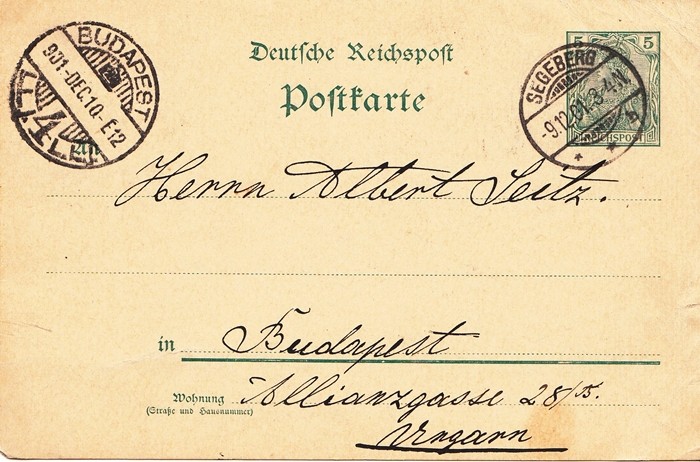 Deutsche Reichspost
Postkarte
BUDAPEST
901-DEC.10.-E12
5 5
REICHSPOST
SEGEBERG
-9.12.01.3-4.N.
Herrn Albert Seitz.
in Budapest
Wohnung Allianzgasse 28/
(Straße und Hausnummer)
Ungarn